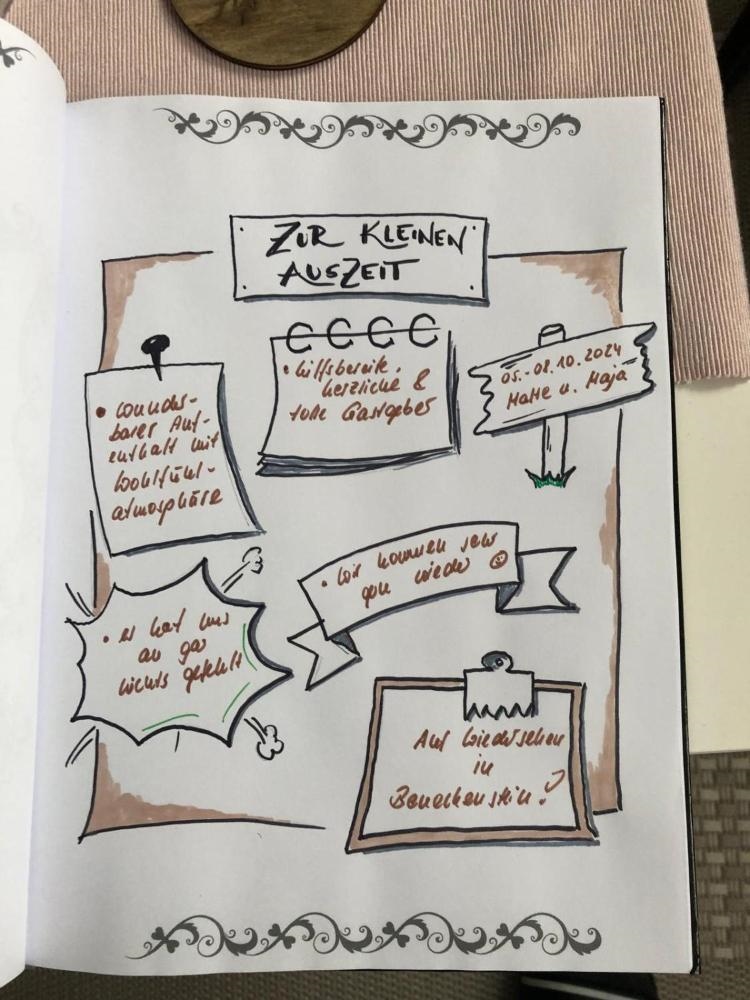 ZUR KLEINEN
AUSZEIT
• wunder-
barer Auf-
enthalt mit
Wohlfühl-
atmosphäre
• hilfsbereite,
herzliche &
tolle Gastgeber
05.-08.10.2024
Malte u. Maja
• wir kommen sehr
gern wieder ☺
• es hat uns
an gar
nichts gefehlt
Auf Wiedersehen
in
Benneckenstein!